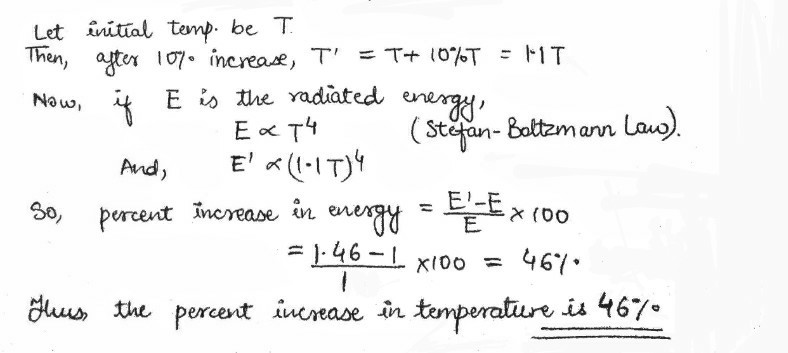 Let initial temp. be T.
Then, after 10% increase, T' = T + 10%T = 1·1T
Now, if E is the radiated energy,
E ∝ T⁴ (Stefan-Boltzmann Law).
And, E' ∝ (1·1T)⁴
So, percent increase in energy = E'-E/E × 100
= 1·46 - 1/1 ×100 = 46%.
Thus, the percent increase in temperature is 46%